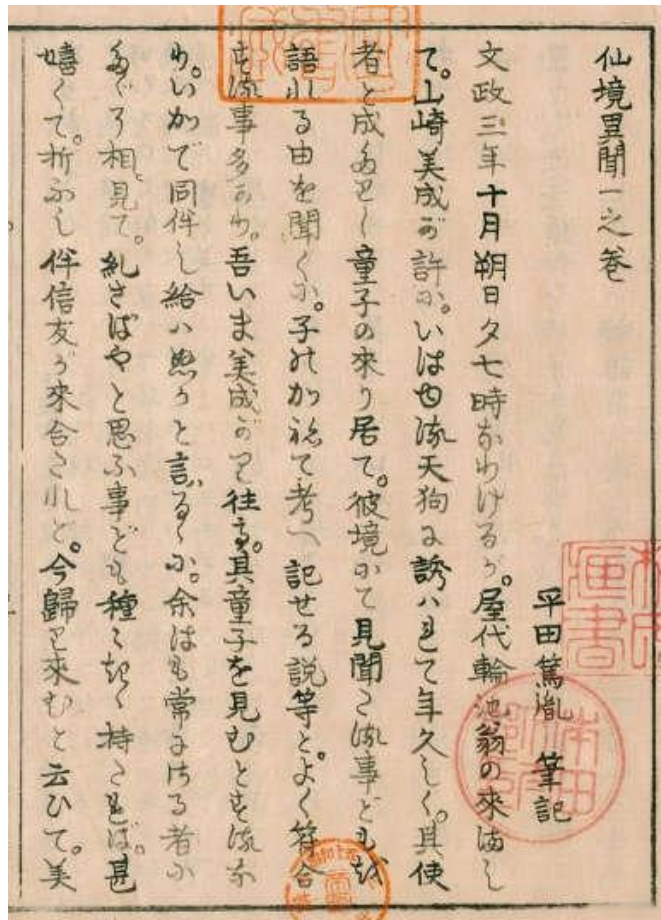 仙境異聞一之巻
平田篤胤 筆記
文政三年十月朔日夕七時なりけるが。屋代輪池翁の來まし
て。山崎美成が許に。いはゆる天狗に誘はれて年久しく。其使
者と成たりし童子の來り居て。彼境にて見聞たる事どもを
語れる由を聞くに。子のかねて考へ記せる説等と。よく符合
する事多かり。吾いま美成がり往て。其童子を見むとするな
り。いかで同伴し給はぬかと言るゝに。余はも常にさる者に
たゞに相見て。糺さばやと思ふ事ども種々きく持たれば。甚
嬉くて。折ふし伴信友が來合されど。今歸り來むと云ひて。美